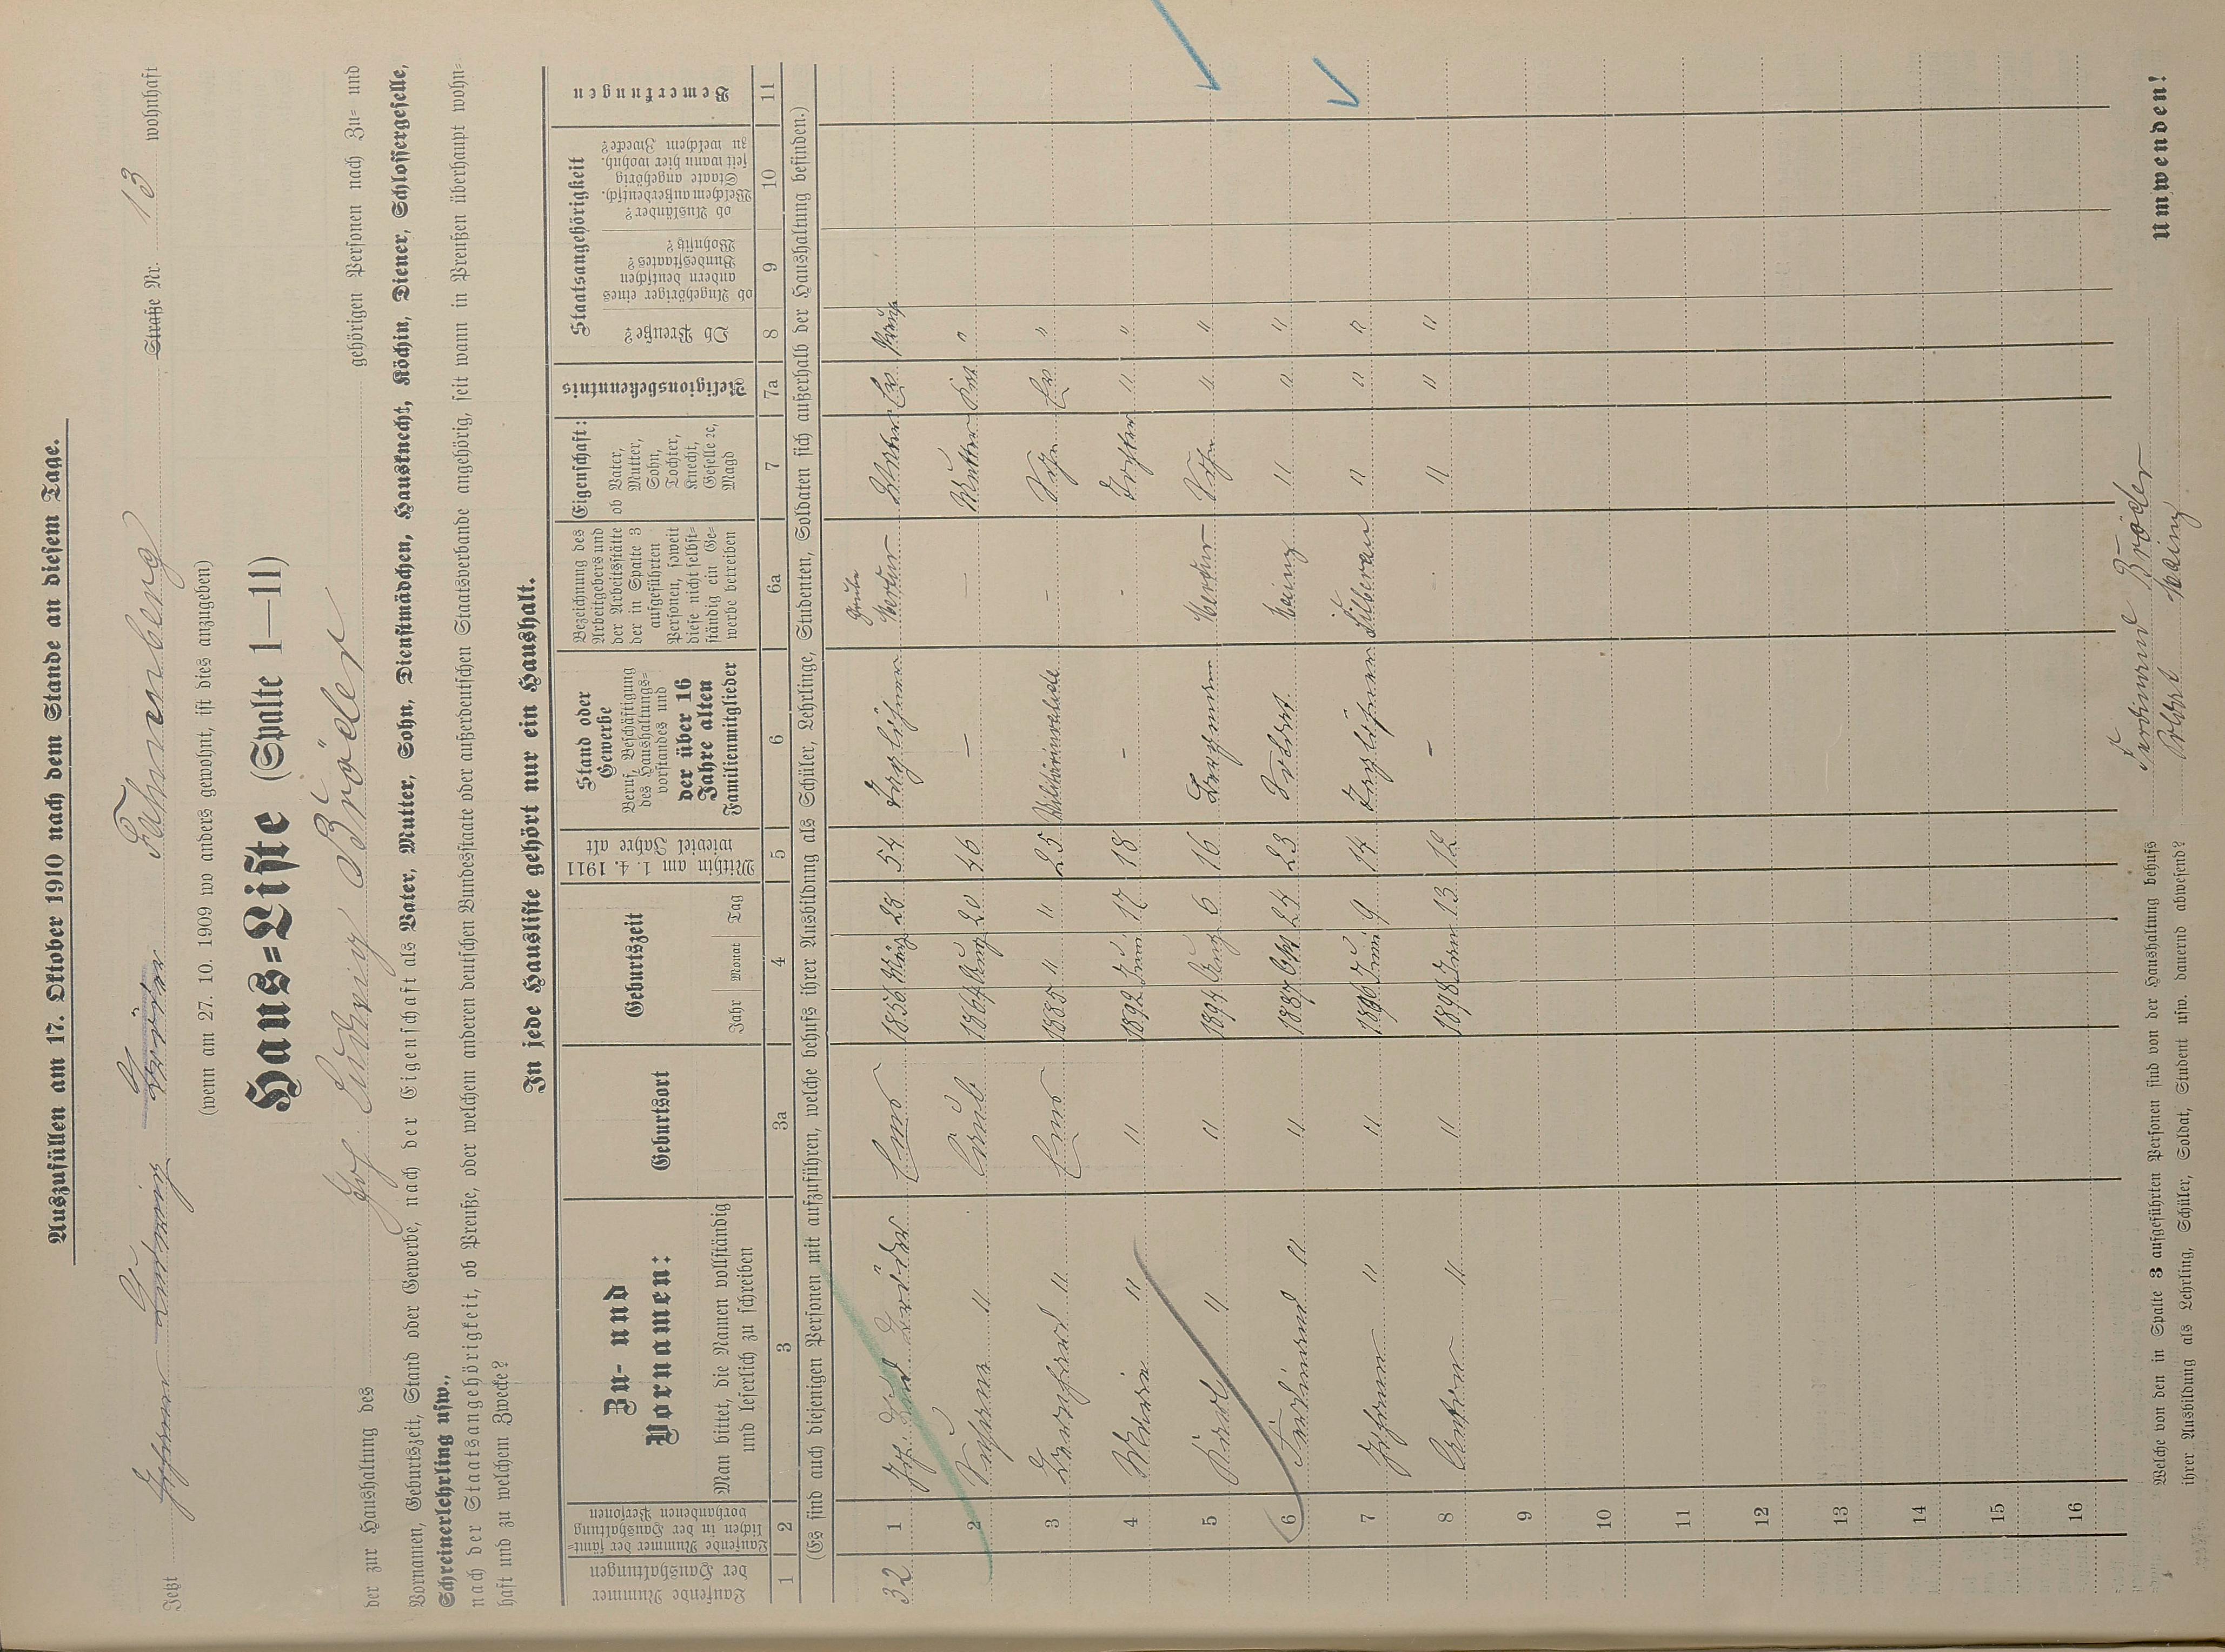 Auszufüllen am 17. Oktober 1910 nach dem Stande an diesem Tage.
Jetzt Johann Ludwig Bröder Fahnenberg Straße Nr. 13 wohnhaft
(wenn am 27. 10. 1909 wo anders gewohnt, ist dies anzugeben)
Haus=Liste (Spalte 1—11)
der zur Haushaltung des Joh. Ludwig Bröder gehörigen Personen nach Zu= und
Vornamen, Geburtszeit, Stand oder Gewerbe, nach der Eigenschaft als Vater, Mutter, Sohn, Dienstmädchen, Hausknecht, Köchin, Diener, Schlossergeselle,
Schreinerlehrling usw.,
nach der Staatsangehörigkeit, ob Preuße, oder welchem anderen deutschen Bundesstaate oder außerdeutschen Staatsverbande angehörig, seit wann in Preußen überhaupt wohn=
haft und zu welchem Zwecke?
In jede Hausliste gehört nur ein Haushalt.
Laufende Nummer der Haushaltungen
Laufende Nummer der sämt=lichen in der Haushaltung vorhandenen Personen
Zu- und Vornamen:
Man bittet, die Namen vollständig und leserlich zu schreiben
Geburtsort
Geburtszeit
Jahr Monat Tag
Mithin am 1. 4. 1911 wieviel Jahre alt
Stand oder Gewerbe
Beruf, Beschäftigung des Haushaltungs=vorstandes und der über 16 Jahre alten Familienmitglieder
Bezeichnung des Arbeitgebers und der Arbeitsstätte der in Spalte 3 aufgeführten Personen, soweit diese nicht selbst=ständig ein Ge=werbe betreiben
Eigenschaft:
ob Vater, Mutter, Sohn, Tochter, Knecht, Geselle ec, Magd
Religionsbekenntnis
Staatsangehörigkeit
Ob Preuße?
ob Angehöriger eines andern deutschen Bundesstaates? Wohnsitz?
ob Ausländer? Welchem außerdeutsch. Staate angehörig seit wann hier wohnh. zu welchem Zwecke?
Bemerkungen
1 2 3 3a 4 5 6 6a 7 7a 8 9 10 11
(Es sind auch diejenigen Personen mit aufzuführen, welche behufs ihrer Ausbildung als Schüler, Lehrlinge, Studenten, Soldaten sich außerhalb der Haushaltung befinden.)
32 1 Joh. Lud Bröder Ems 1856 März 28 54 Taglöhner Grube Merkur Vater Ev Preuße
2 " 1864 Aug 20 46 — — Mutter "
3 Bernhard " Ems 1885 " " 25 Militärinvalide - Sohn Ev "
4 Maria " " 1892 Juni 17 18 - - Tochter " "
5 Karl " " 1894 Aug 6 16 Bergmann Merkur Sohn " "
6 Ferdinand " " 1887 Okt 24 23 Soldat Mainz " " "
7 Johann " " 1896 Juni 9 14 Taglöhner Silberau " " "
8 Anton " " 1898 Jan 13 12 - - " " "
9
10
11
12
13
14
15
16
Welche von den in Spalte 3 aufgeführten Personen sind von der Haushaltung behufs
ihrer Ausbildung als Lehrling, Schüler, Soldat, Student usw. dauernd abwesend?
Ferdinand Bröder
Soldat Mainz
Umwenden!